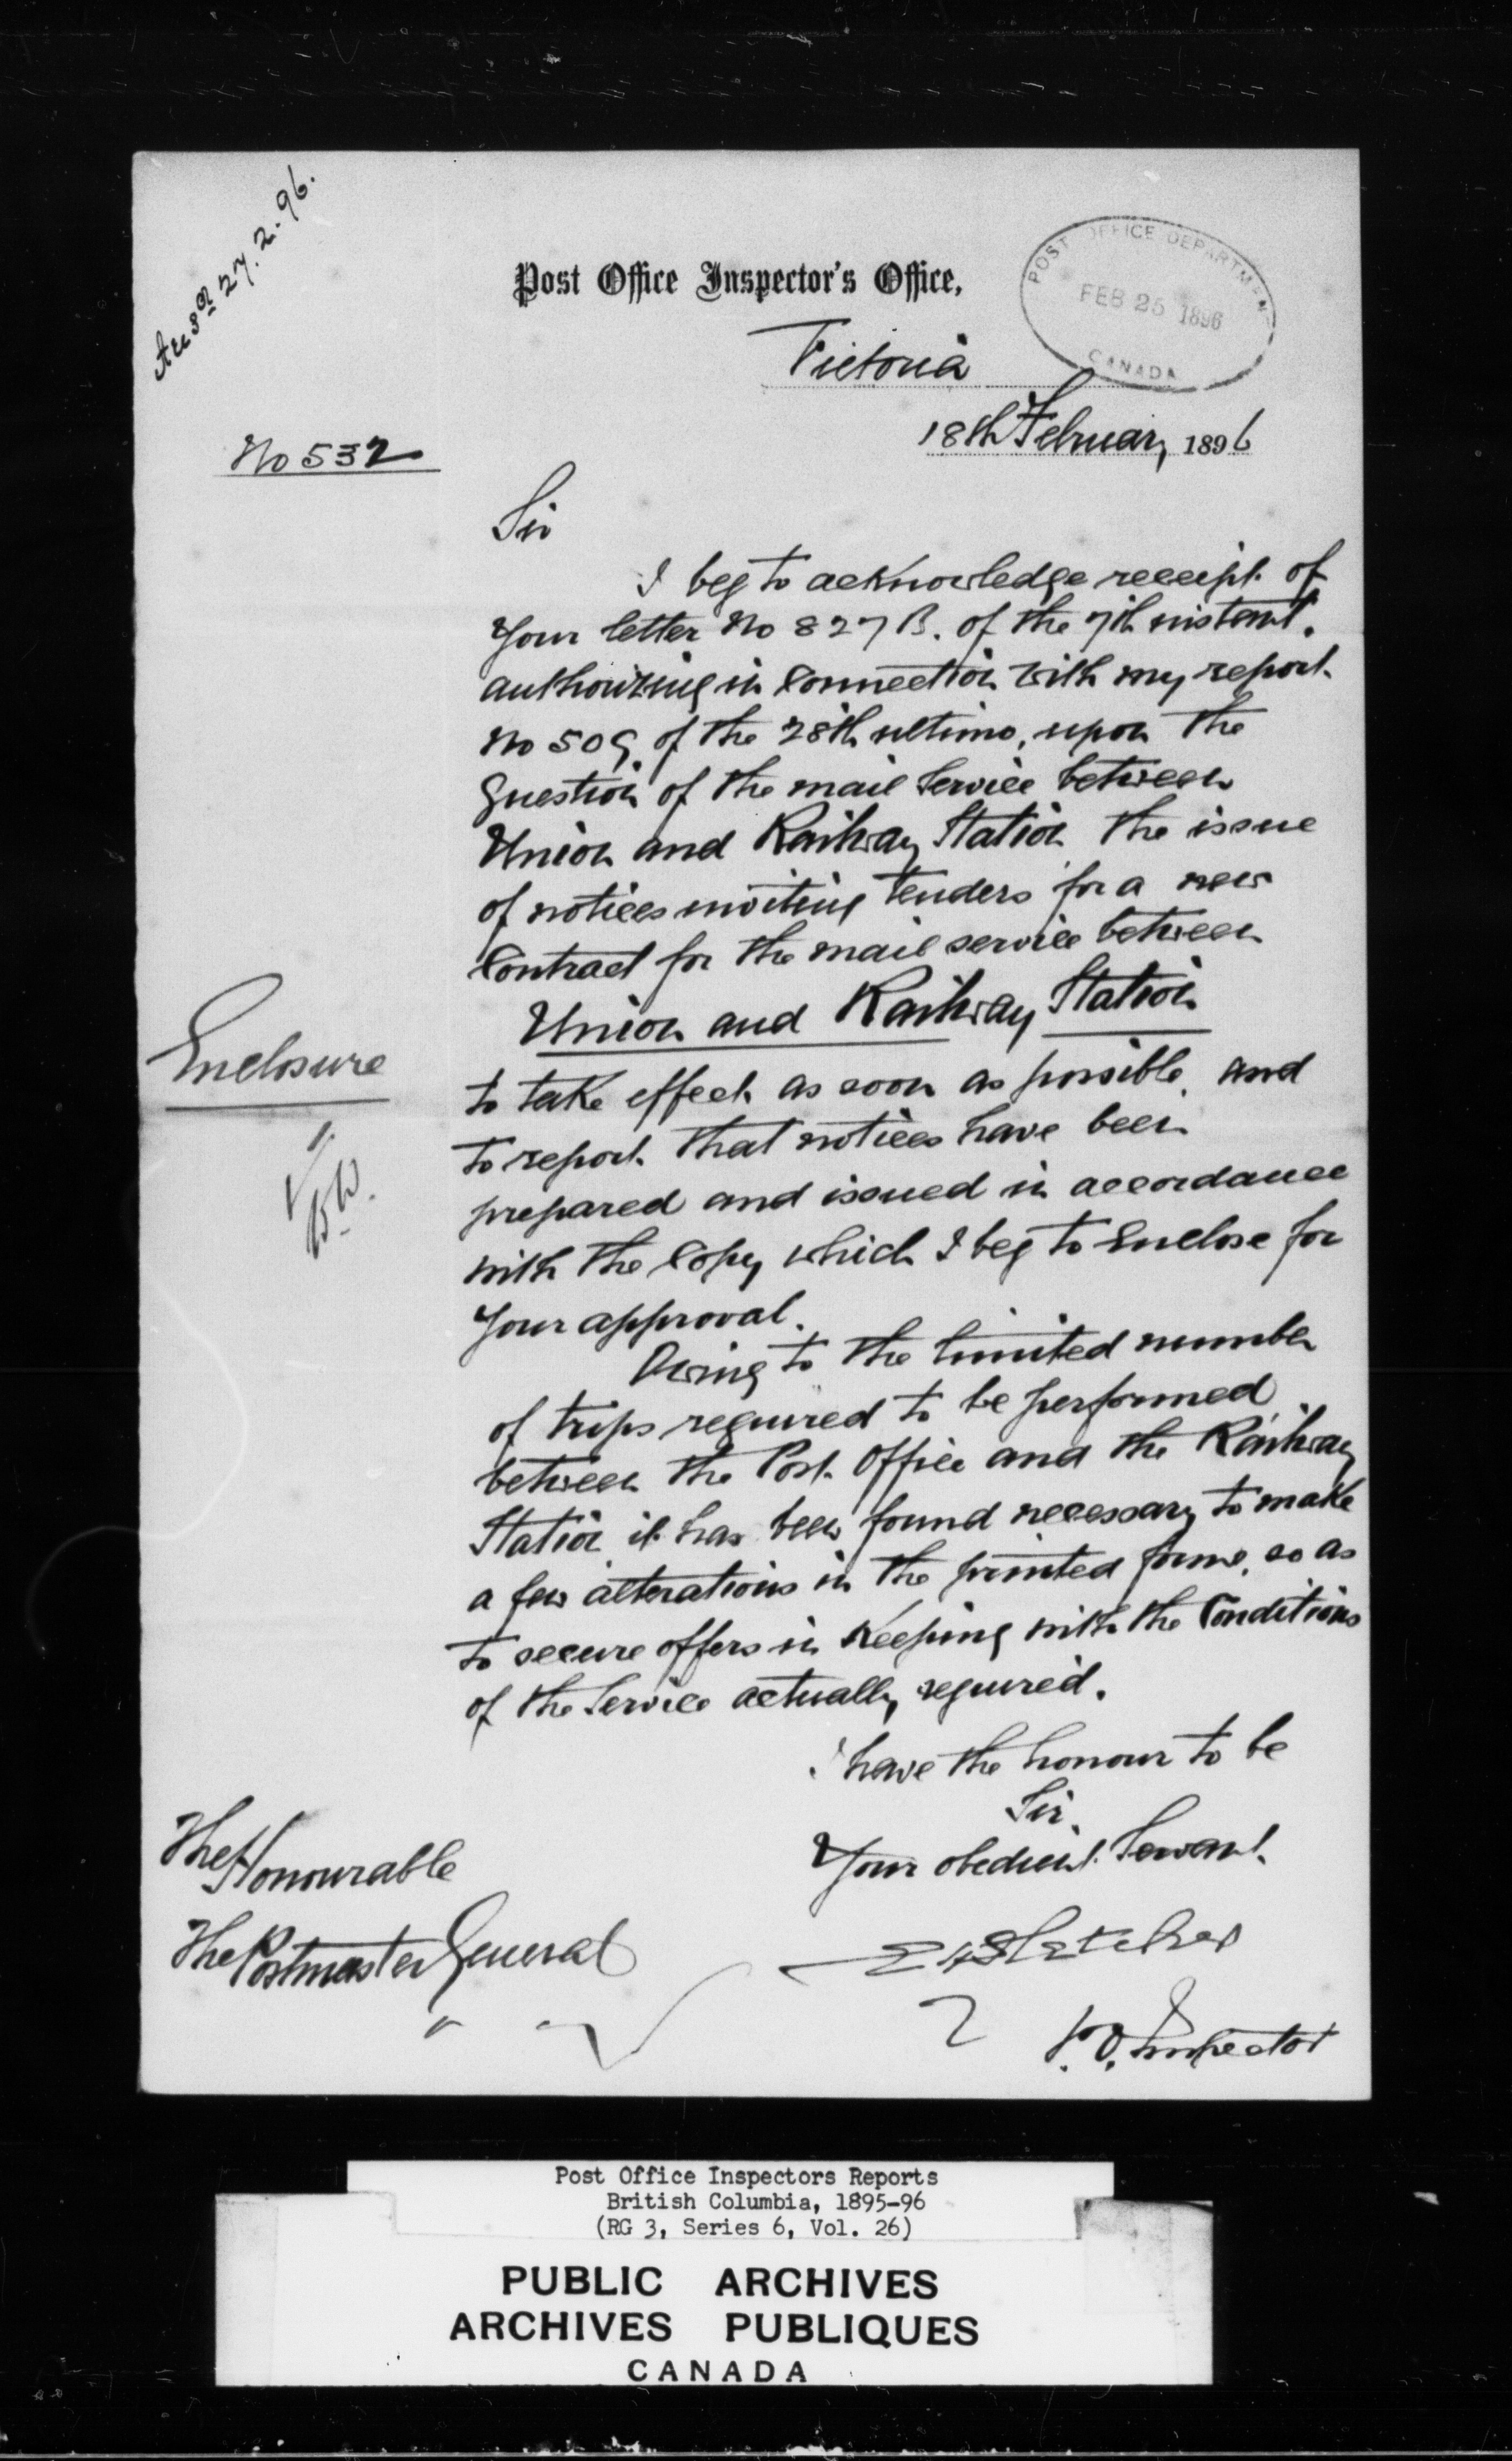 Ansd 27.2.96.
Post Office Inspector's Office,
POST OFFICE DEPARTMENT
FEB 25 1896
CANADA
Victoria
18th February 1896
No 532
Sir
I beg to acknowledge receipt of
Your letter No 827 B. of the 7th instant.
authorizing in Connection with my report
No 509 of the 28th ultimo, upon the
Question of the mail Service between
Union and Railway Station the issue
of notices inviting tenders for a new
Contract for the mail service between
Union and Railway Station
Enclosure
to take effect as soon as possible, and
to report that notices have been
prepared and issued in accordance
with the Copy which I beg to Enclose for
Your approval.
Owing to the limited number
of trips required to be performed
between the Post Office and the Railway
Station it has been found necessary to make
a few alterations in the printed forms, so as
to secure offers in Keeping with the Conditions
of the Service actually required.
I have the honour to be
Sir,
Your obedient Servant.
The Honourable
The Postmaster General
E H Fletcher
P.O. Inspector
Post Office Inspectors Reports
British Columbia, 1895-96
(RG 3, Series 6, Vol. 26)
PUBLIC ARCHIVES
ARCHIVES PUBLIQUES
CANADA